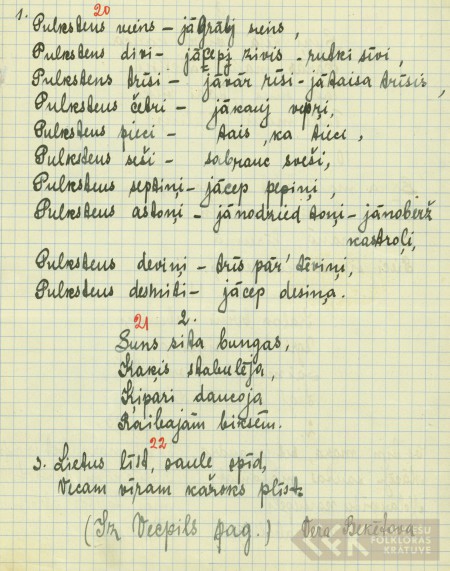 20
1. Pulkstens viens – jāgrābj siens,
Pulkstens divi – jācepj zivis – rutki sīvi,
Pulkstens trīsi – jāvār rīsi – jātaisa trīsis,
Pulkstens četri – jākauj vepŗi,
Pulkstens pieci – tais, ka tieci,
Pulkstens seši – sabrauc sveši,
Pulkstens septiņi – jācep pepiņi,
Pulkstens astoņi – jānodzied toņi – jānoberž
kastroļi,
Pulkstens deviņi – trīs pār' tēviņi,
Pulkstens desmiti – jācep desiņa.
21 2.
Suns sita bungas,
Kaķis stabulēja,
Ķipari dancoja
Raibajām biksēm.
22
3. Lietus līst, saule spīd,
Vecam vīram kažoks plīst.
(Iz Vecpils pag.) Vera Beķerova
LATVIEŠU
FOLKLORAS
KRĀTUVE